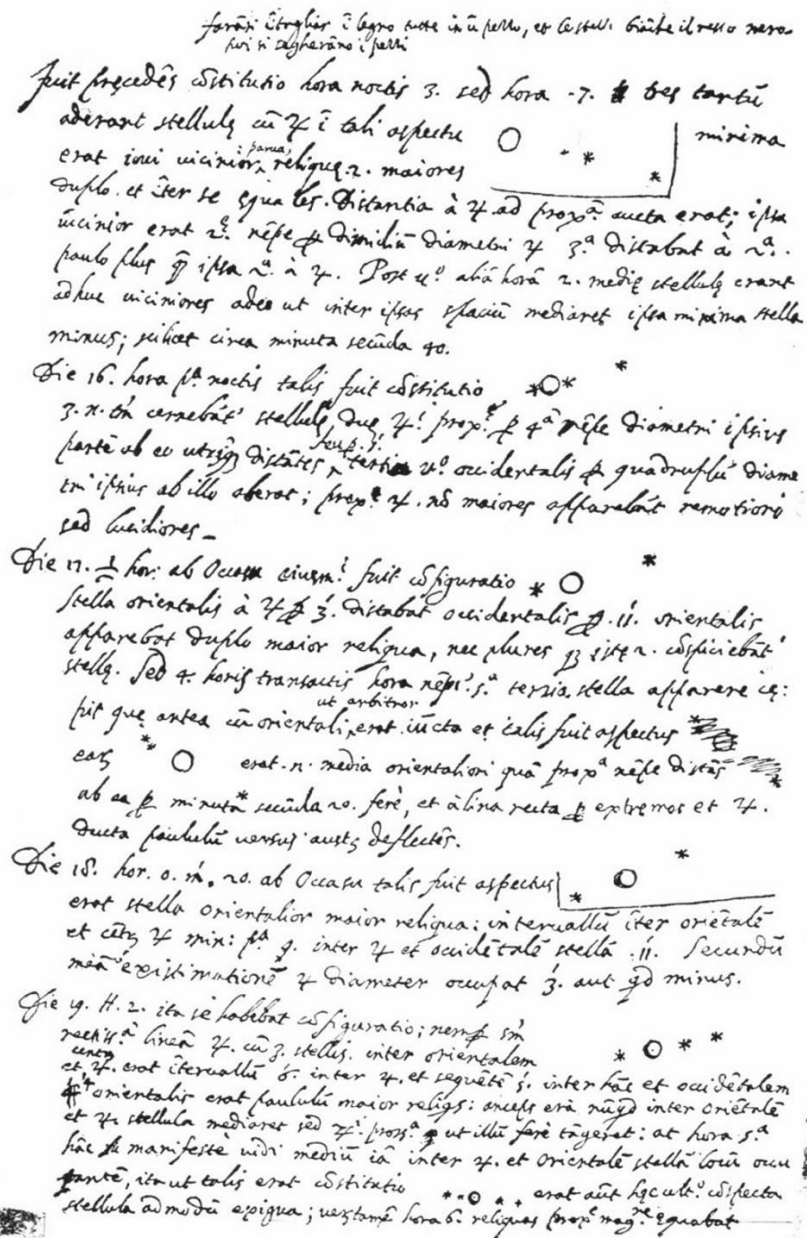 farāsi ītagliar ī legno tutte in ū pezzo, et le stelle biāche il resto nero
poi si segherāno i pezzi
fuit precedēs cōstitutio hora noctis 3. sed hora 7. tres tantū
aderant stellulę cū ♃ ī tali aspectu ○ * * * minima
erat iovi vicinior, parva, relique 2. maiores
duplo. et īter se ęquales. Distantia à ♃ ad proxᵃ aucta erat; ipsa
3ᵃ distabat à 2ᵃ.
paulo plus ipsa 2ᵃ. à ♃. Post vᵒ aliā horā 2. medię stellulę erant
adhuc viciniores adeo ut inter ipsas spaciū mediaret ipsa minima stella
minus; scilicet circa minuta secūda 40.
Die 16. hora pᵃ noctis talis fuit cōstitutio *○* *
3. n. tm̄ cernebātʳ stellulę, duę ♃ⁱ proxᵉ diametri ipsius
partē ab eo distātes, tertia vᵒ occidentalis quadruplū diame
tri ipsius ab illo aberat; proxᵉ ♃. nō maiores apparebāt remotiori
sed lucidiores_
Die 17. hor: ab Occasu fuit cōfiguratio * ○ *
stella orientalis à ♃ 3́. distabat occidentalis 11́. orientalis
apparebat duplo maior reliqua, nec plures istę 2. cōspiciebātʳ
stellę. Sed 4. horis transactis hora 5ᵃ tertia stella apparere cę:
pit quę antea cū orientali, ut arbitror erat iūcta et talis fuit aspectus
** ○ * erat. n. media orientaliori quā proxᵃ distās
ab ea minuta secūda 20. ferè, et à linea recta extremas et ♃.
ducta paululū versus austꝫ deflectēs.
Die 18. hor. 0. m̄. 20. ab Occasu talis fuit aspectus * ○ *
erat stella orientalior maior reliqua: intervallū īter oriētalē
et cētꝫ ♃ min: pᵃ 9. inter ♃ et occidētalē stellā .11. Secundū
meā existimationē ♃ diameter occupat 3́. aut minus.
Die 19. H. 2. ita sē habebat cōfiguratio;
lineā ♃. cū 3. stellis. inter orientalem * ○ * *
et ♃. centꝫ erat ītervallū 6. inter ♃. et sequētē 5. inter hāc et occidētalem
4 orientalis erat paululū maior reliqs: anceps erā inter oriētalē
et ♃. stellula mediaret sed ♃ⁱ proxᵃ ut illū ferè tāgeret: at hora 5ᵃ
hāc manifestè vidi mediū iā inter ♃. et orientalē stellā locū occu
pantē, ita ut talis erat cōstitutio **○ * * erat aūt cōspecta
stellula admodū exigua; hora 6. reliquas ęquabat